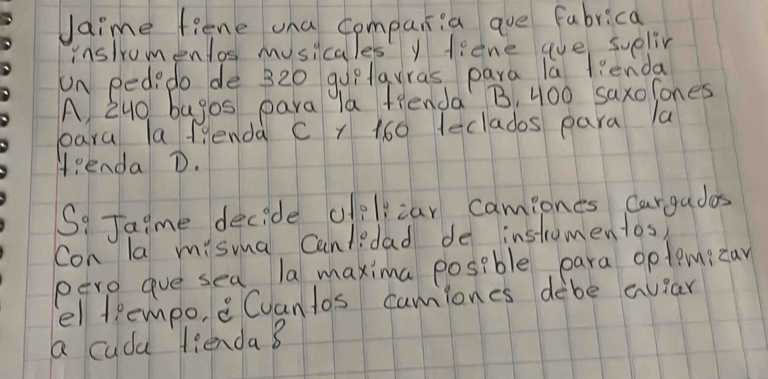 Jaime tiene una compañia que fabrica
instrumentos musicales y tiene que suplir
un pedido de 320 guitarras para la tienda
A, 240 bajos para la tienda B, 400 saxofones
para la tienda C y 160 teclados para la
tienda D.
Si Jaime decide utilizar camiones cargados
con la misma cantidad de instrumentos,
pero que sea la maxima posible para optimizar
el tiempo, ¿Cuantos camiones debe enviar
a cada tienda?